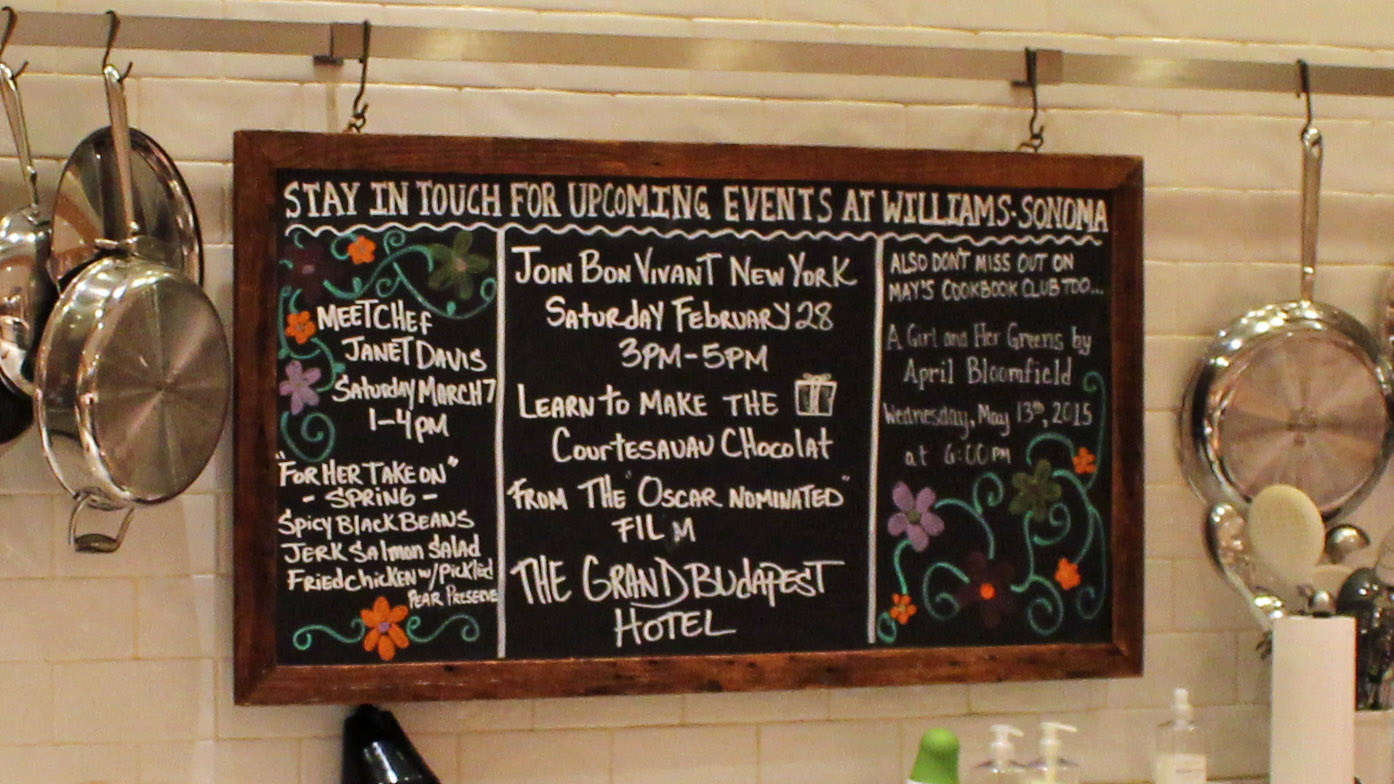 STAY IN TOUCH FOR UPCOMING EVENTS AT WILLIAMS-SONOMA
MEET CHEF
JANET DAVIS
Saturday MARCH 7
1-4PM
"FOR HER TAKE ON"
- SPRING -
Spicy BLACK BEANS
JERK SALMON SALAD
FRIED CHICKEN w/ PICKLED
PEAR PRESERVE
JOIN BON VIVANT NEW YORK
SATURDAY FEBRUARY 28
3PM-5PM
LEARN to MAKE THE
COURTESAUAU CHOCOLAT
FROM THE "OSCAR NOMINATED"
FILM
THE GRAND BUDAPEST
HOTEL
ALSO DON'T MISS OUT ON
MAY'S COOKBOOK CLUB TOO...
A Girl and Her Greens by
April Bloomfield
Wednesday, May 13th, 2015
at 6:00 PM